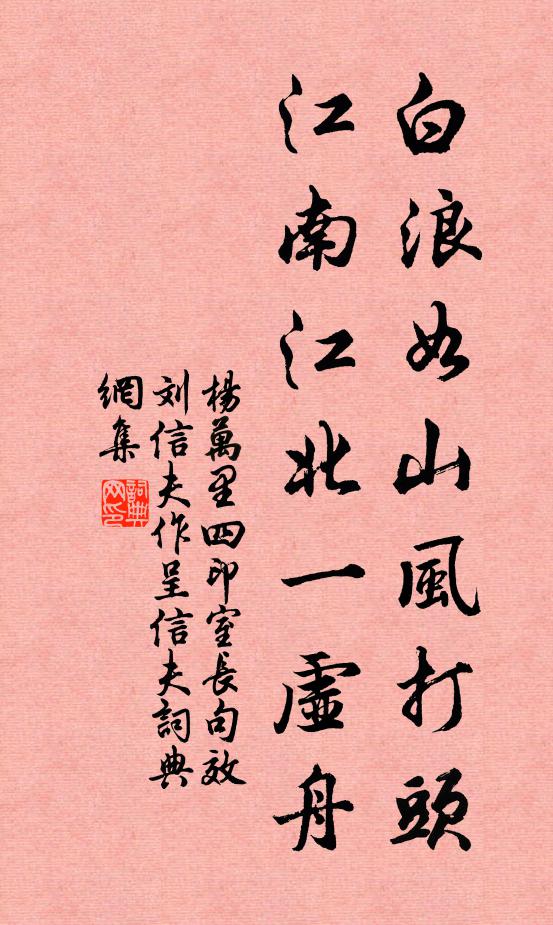 白浪如山風打頭
江南江北一虛舟
楊萬里四印室長句效
刘信夫作呈信夫詞典
網集
詞典網印